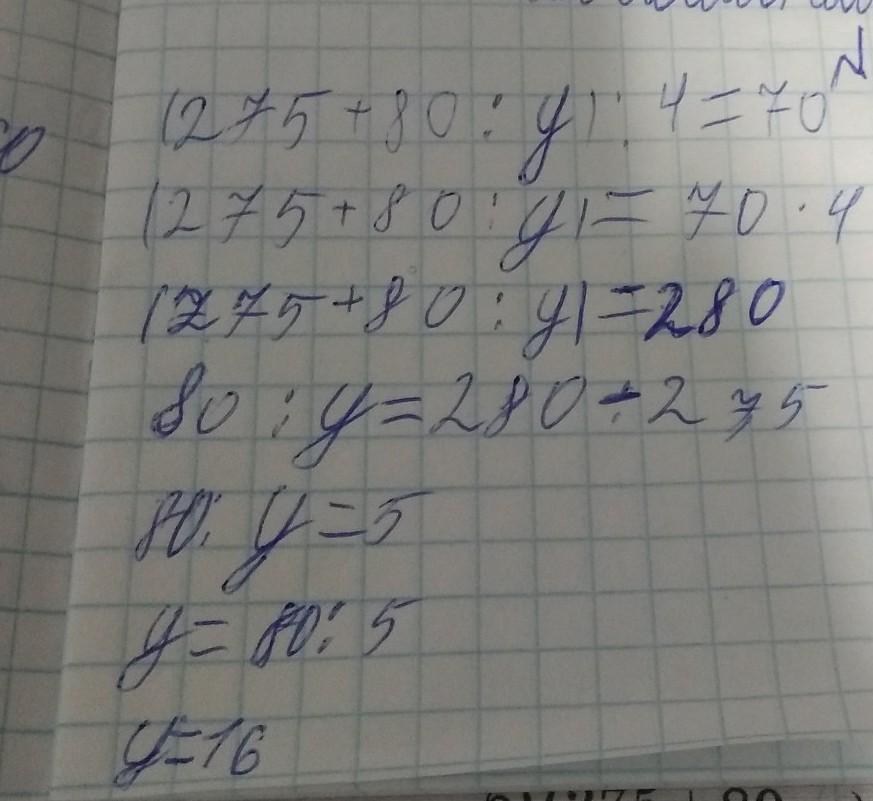 (275+80:y):4=70
(275+80:y)=70·4
(275+80:y)=280
80:y=280-275
80:y=5
y=80:5
y=16